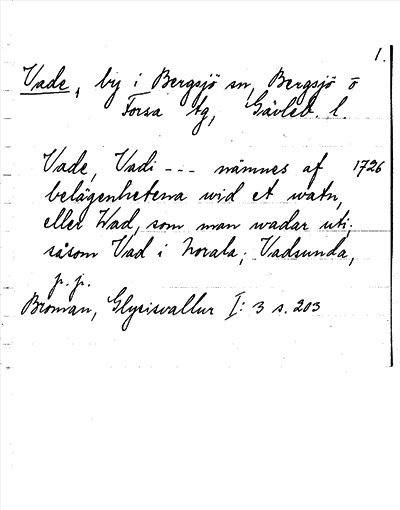 1.
Vade, by i Bergsjö sn, Bergsjö o
Forsa tg, Gävleb. l.
Vade, Vadi --- nämnes af 1726
belägenhetena wid et watn,
eller Wad, som man wadar uti;
såsom Vad i Norala; Vadsunda,
p. p.
Broman, Glysisvallur I: 3 s. 203